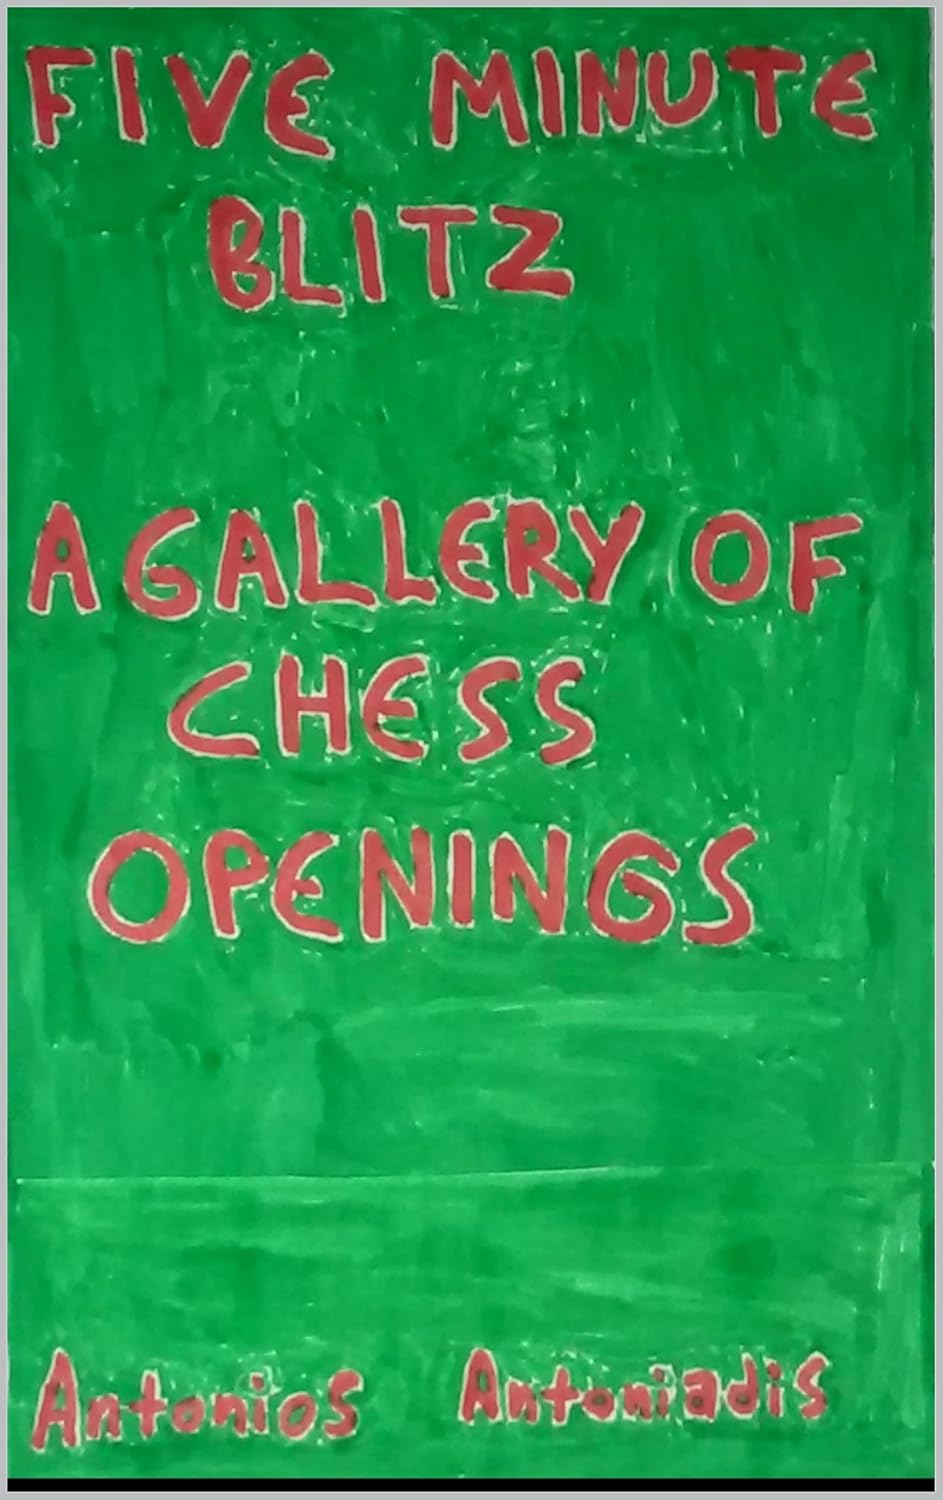 FIVE MINUTE
BLITZ
A GALLERY OF
CHESS
OPENINGS
Antonios Antoniadis